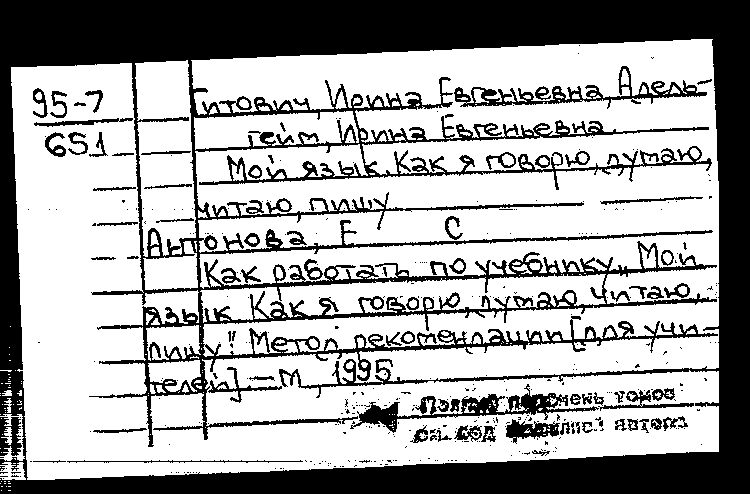 95-7
651
Гитович, Ирина Евгеньевна, Адель-
гейм, Ирина Евгеньевна.
Мой язык. Как я говорю, думаю,
читаю, пишу
Антонова, Е С
Как работать по учебнику „Мой
язык Как я говорю, думаю, читаю,
пишу": Метод. рекомендации [для учи-
телей]. — М, 1995.
Полный перечень томов
см. под фамилией автора